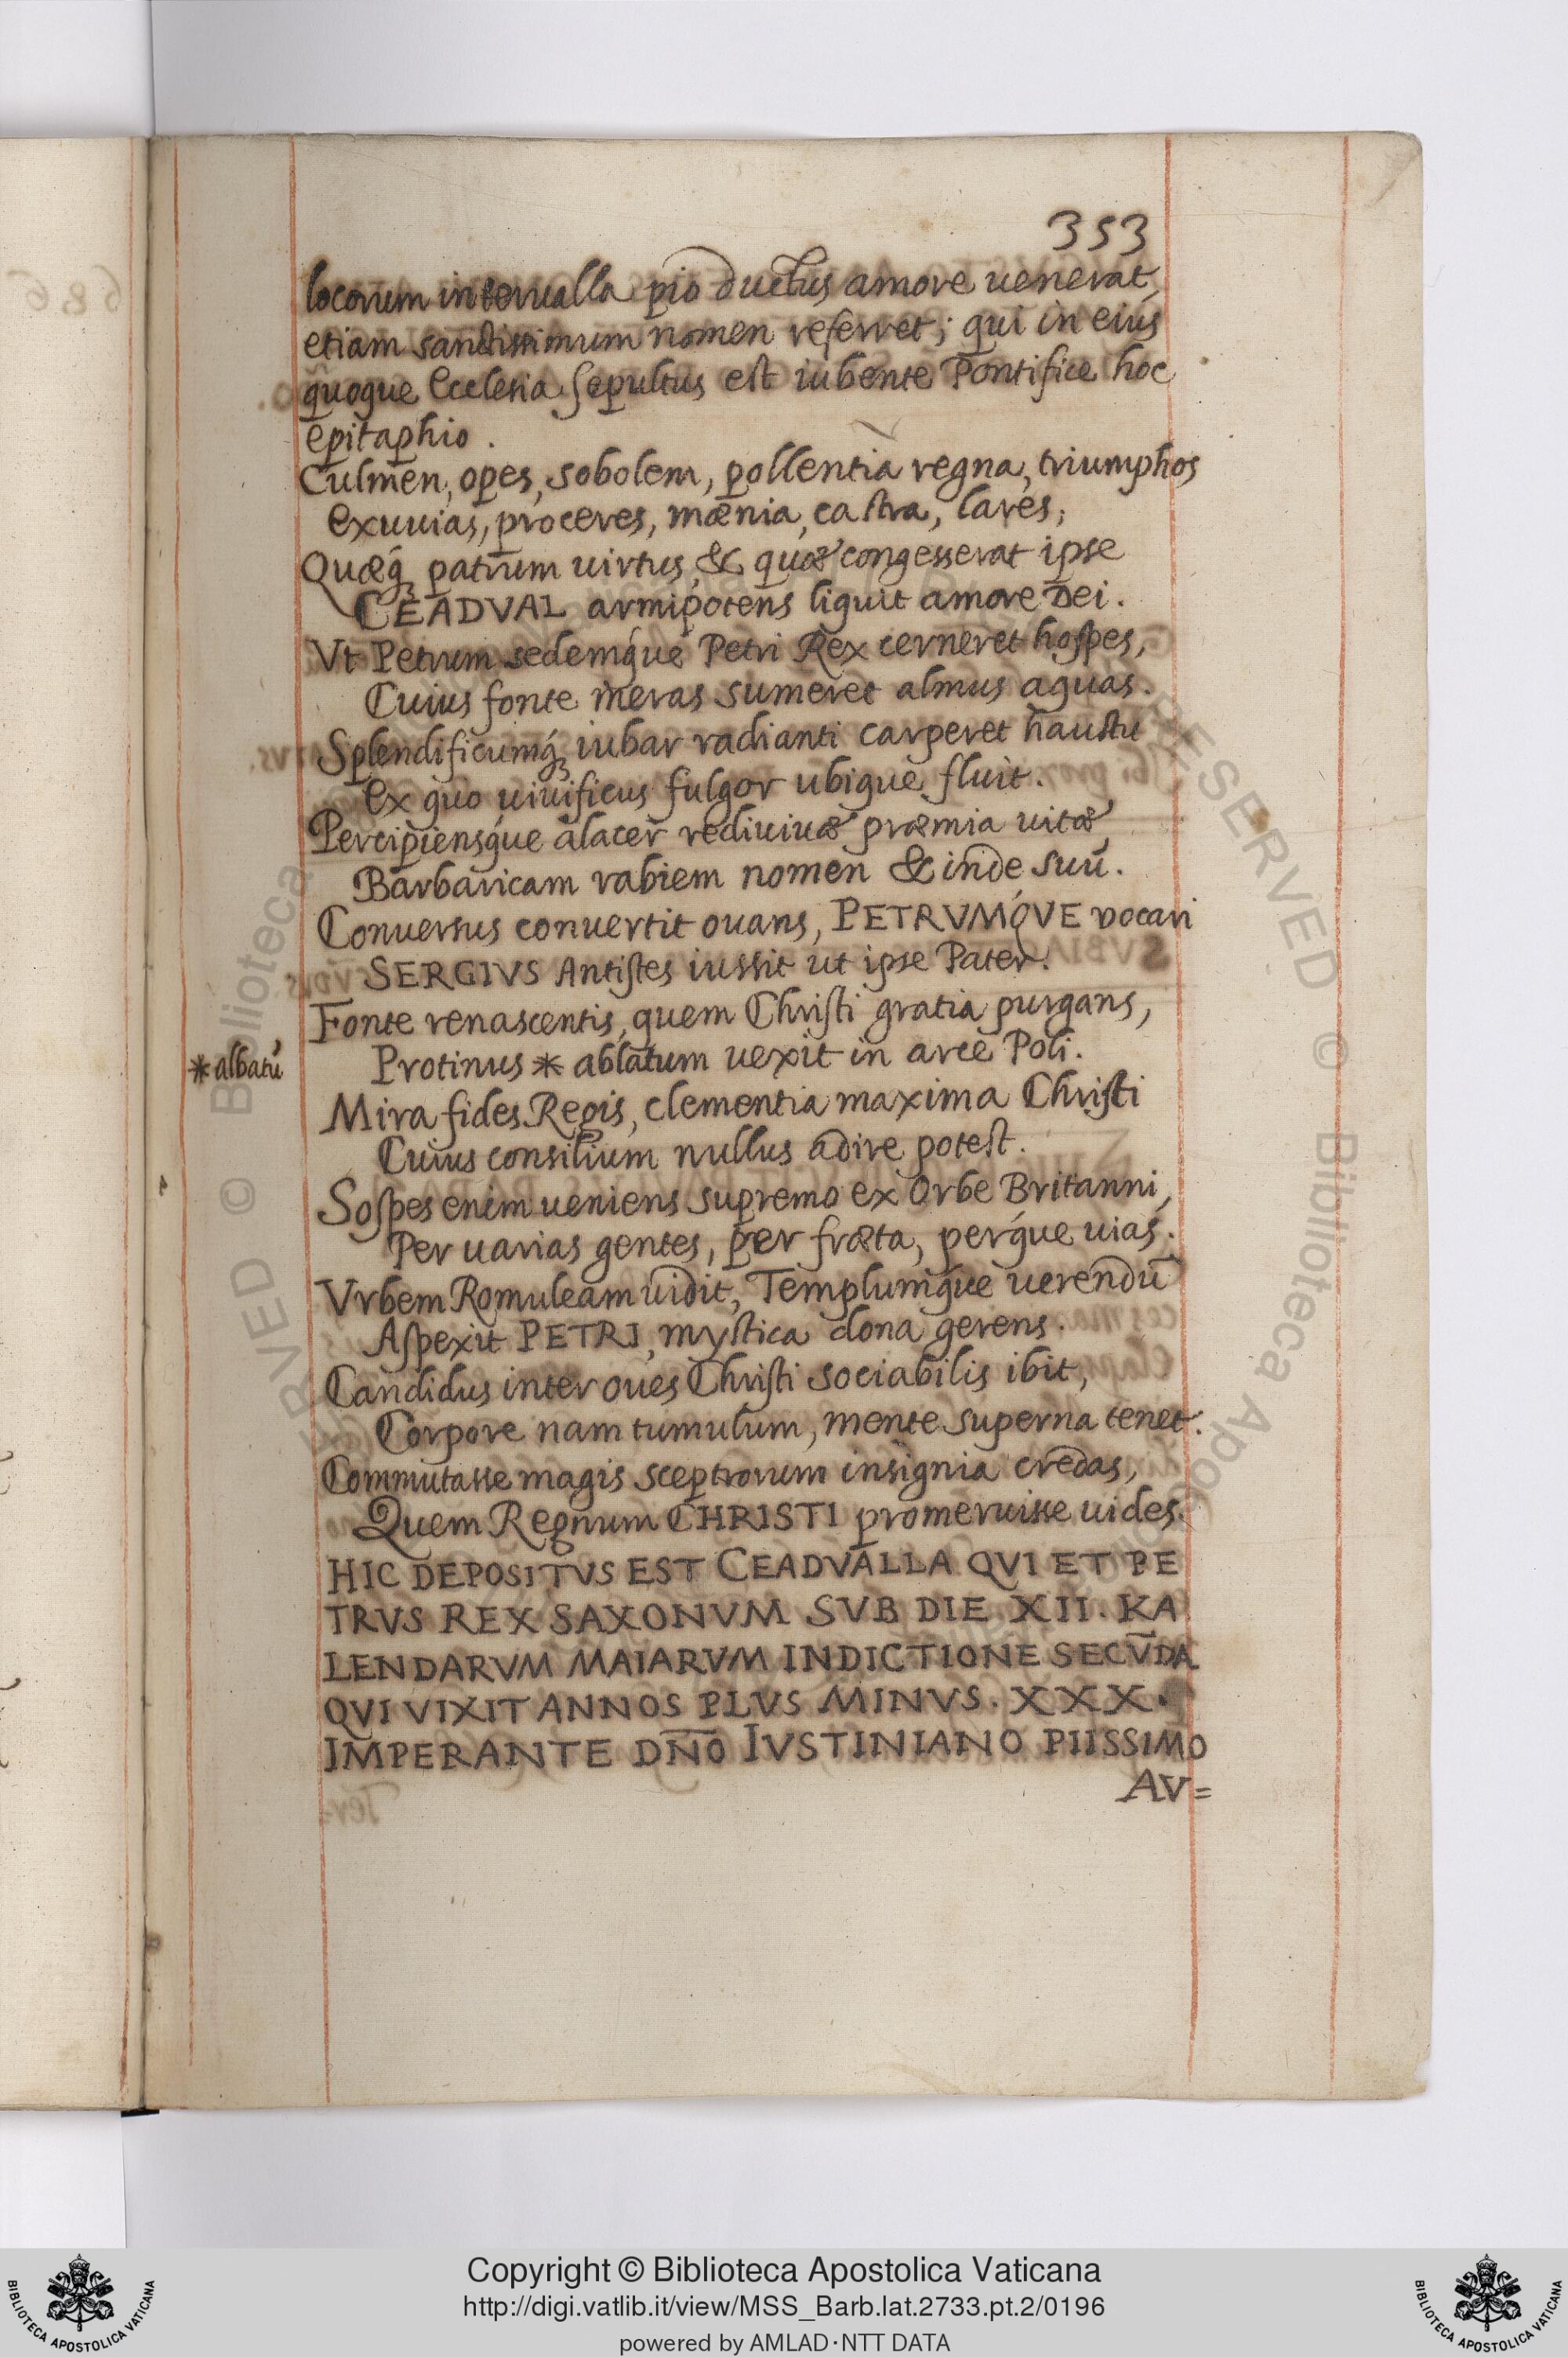 353
locorum interualla pio ductus amore uenerat,
etiam sanctissimum nomen referret; qui in eius
quoque Ecclesia sepultus est iubente Pontifice hoc
epitaphio.
Culmen, opes, sobolem, pollentia regna, triumphos
Exuuias, proceres, mœnia, castra, lares;
Quæq́ꝫ patrum uirtus, & quæ congesserat ipse
CEADVAL armipotens liquit amore Dei.
Vt Petrum sedemq́ue Petri Rex cerneret hospes,
Cuius fonte meras sumeret almus aquas.
Splendificumq́ꝫ iubar radianti carperet haustu
Ex quo uiuificus fulgor ubique fluit.
Percipiensq́ue alacer rediuiuæ præmia uitæ,
Barbaricam rabiem nomen & inde suū.
Conuersus conuertit ouans, PETRVMQ́VE vocari
SERGIVS Antistes iussit ut ipse Pater.
Fonte renascentis, quem Christi gratia purgans,
Protinus * ablatum uexit in arce Poli.
* albatū
Mira fides Regis, clementia maxima Christi
Cuius consilium nullus adire potest.
Sospes enim ueniens supremo ex Orbe Britanni,
Per uarias gentes, per fræta, perq́ue uias.
Vrbem Romuleam uidit, Templumq́ue uerendū
Aspexit PETRI, mystica dona gerens.
Candidus inter oues Christi sociabilis ibit,
Corpore nam tumulum, mente superna tenet.
Commutasse magis sceptrorum insignia credas,
Quem Regnum CHRISTI promeruisse uides.
HIC DEPOSITVS EST CEADVALLA QVI ET PE
TRVS REX SAXONVM SVB DIE XII. KA
LENDARVM MAIARVM INDICTIONE SECV̄DA
QVI VIXIT ANNOS PLVS MINVS. XXX.
IMPERANTE DN̄O IVSTINIANO PIISSIMO
AV=
Copyright © Biblioteca Apostolica Vaticana
http://digi.vatlib.it/view/MSS_Barb.lat.2733.pt.2/0196
powered by AMLAD·NTT DATA
BIBLIOTECA APOSTOLICA VATICANA
BIBLIOTECA APOSTOLICA VATICANA